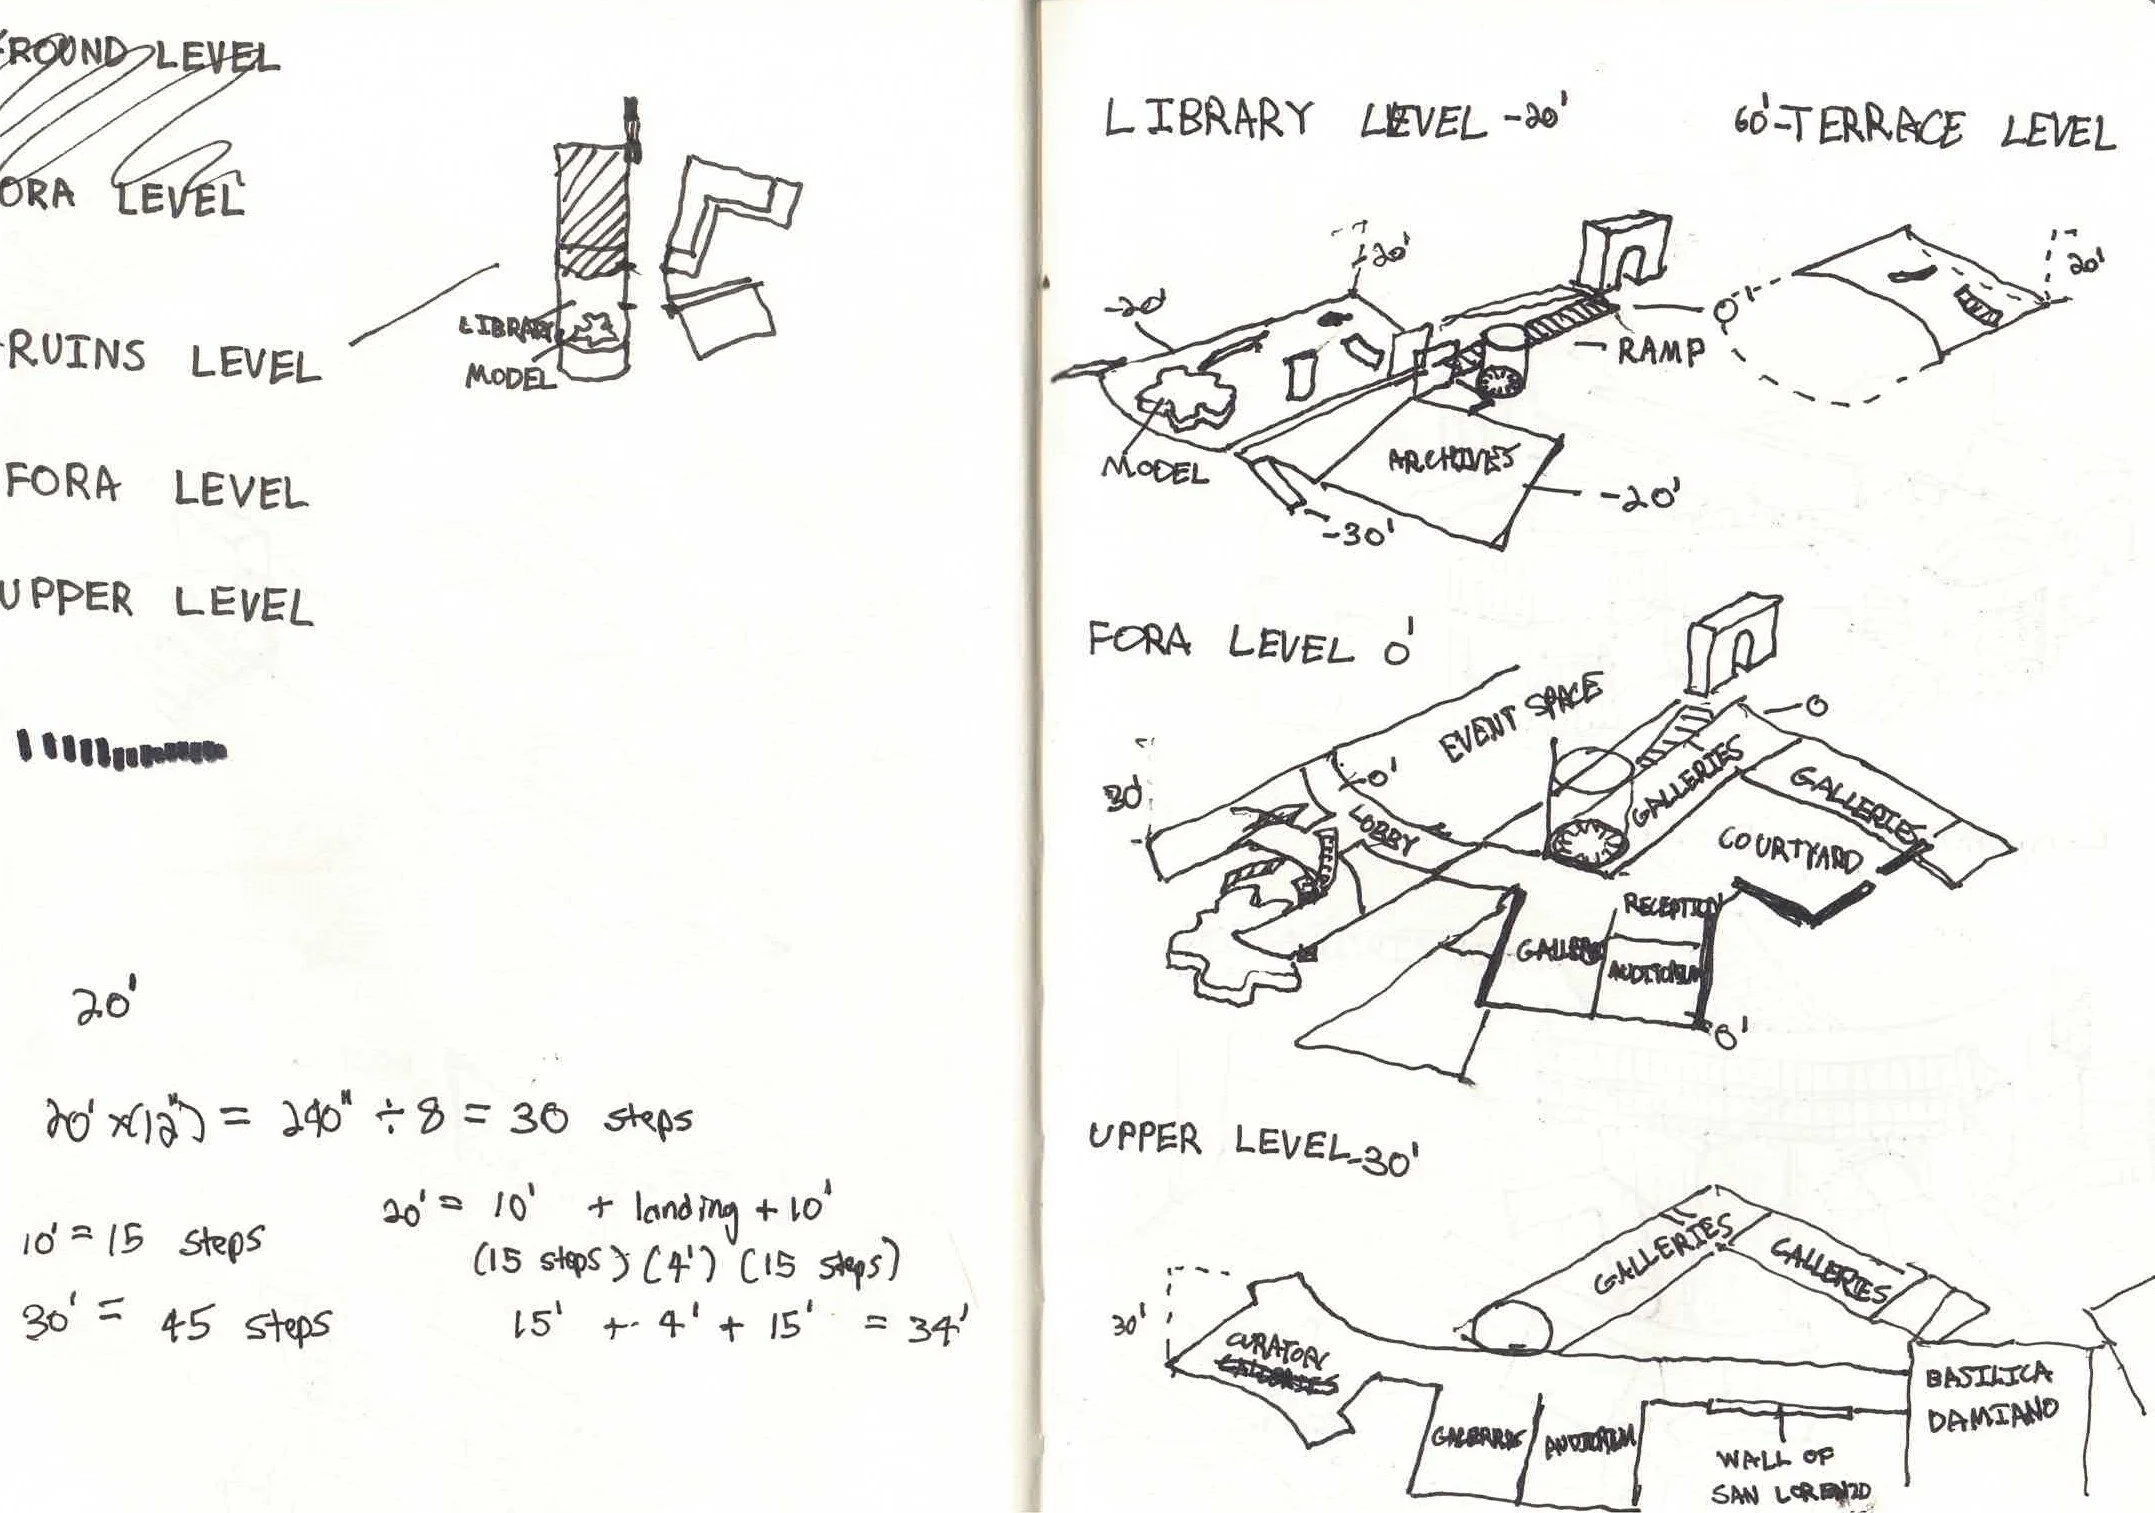 ROUND LEVEL
ORA LEVEL
RUINS LEVEL
FORA LEVEL
UPPER LEVEL
LIBRARY
MODEL
20'
20' x(12") = 240" ÷ 8 = 30 steps
10' = 15 steps
30' = 45 steps
20' = 10' + landing + 10'
(15 steps) (4') (15 steps)
15' + 4' + 15' = 34'
LIBRARY LEVEL -20'
60'-TERRACE LEVEL
-20'
-20'
0'
20'
RAMP
MODEL
ARCHIVES
-20'
-30'
FORA LEVEL 0'
EVENT SPACE
0
30'
0'
LOBBY
GALLERIES
GALLERIES
COURTYARD
RECEPTION
GALLERY
AUDITORIUM
0'
UPPER LEVEL -30'
GALLERIES
GALLERIES
30'
CURATOR
GALLERIES
GALLERIES
AUDITORIUM
BASILICA
DAMIANO
WALL OF
SAN LORENZO